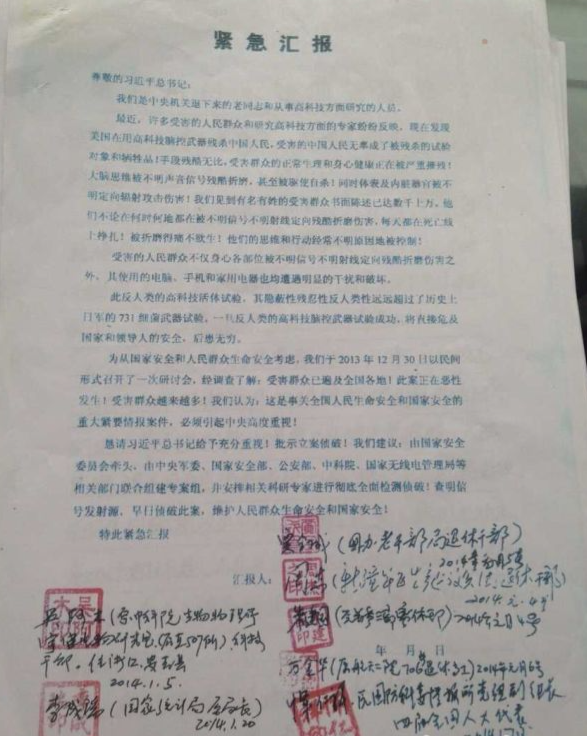 紧急汇报
尊敬的习近平总书记：
我们是中央机关退下来的老同志和从事高科技方面研究的人员。
最近，许多受害的人民群众和研究高科技方面的专家纷纷反映，现在发现
美国在用高科技脑控武器残杀中国人民，受害的中国人民无辜成了被残杀的试验
对象和牺牲品！手段残酷无比，受害群众的正常生理和身心健康正在被严重摧残！
大脑思维被不明声音信号残酷折磨，甚至被驱使自杀！同时体表及内脏器官被不
明定向辐射攻击伤害！我们见到有名有姓的受害群众书面陈述已达数千上万，他
们不论在何时何地都在被不明信号不明射线定向残酷折磨伤害，每天都在死亡线
上挣扎！被折磨得痛不欲生！他们的思维和行动经常不明原因地被控制！
受害的人民群众不仅身心各部位被不明信号不明射线定向残酷折磨伤害之
外，其使用的电脑、手机和家用电器也均遭遇明显的干扰和破坏。
此反人类的高科技活体试验，其隐蔽性残忍性反人类性远远超过了历史上
日军的 731 细菌武器试验，一旦反人类的高科技脑控武器试验成功，将直接危及
国家和领导人的安全，后患无穷。
为从国家安全和人民群众生命安全考虑，我们于 2013 年 12 月 30 日以民间
形式召开了一次研讨会，经调查了解：受害群众已遍及全国各地！此案正在恶性
发生！受害群众越来越多！我们认为：这是事关全国人民生命安全和国家安全的
重大紧要情报案件，必须引起中央高度重视！
恳请习近平总书记给予充分重视！批示立案侦破！我们建议：由国家安全
委员会牵头、由中央军委、国家安全部、公安部、中科院、国家无线电管理局等
相关部门联合组建专案组，并安排相关科研专家进行彻底全面检测侦破！查明信
号发射源，早日侦破此案，维护人民群众生命安全和国家安全！
特此紧急汇报
(国办老干部局退休干部)
汇报人：
2014.元.4
2014年元月4号
年 月 日
2014年元月6号
干部
2014.1.5.
四届全国人大代表
(国家统计局
2014.1.20